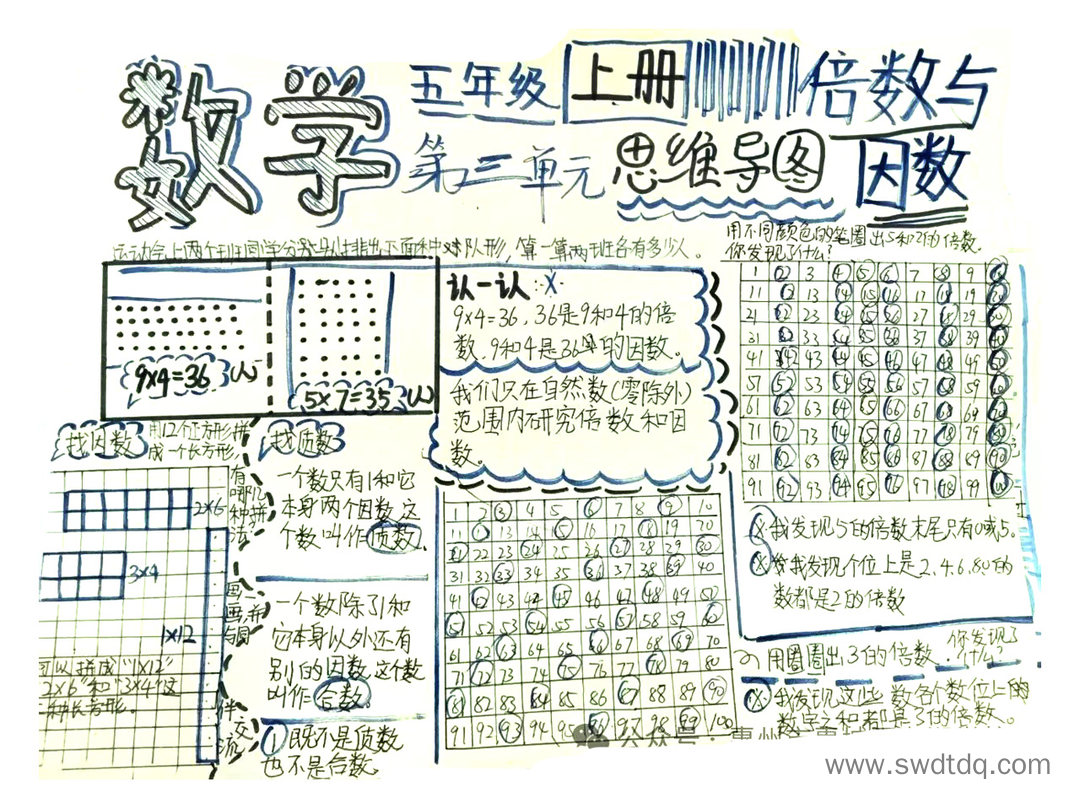 数学
五年级 上册 倍数与
因数
第三单元 思维导图
运动会上两个班同学分别排出下面种对队形，算一算两班各有多少人。
9×4=36(人)
5×7=35(人)
认一认
9×4=36，36是9和4的倍
数，9和4是36的因数。
我们只在自然数(零除外)
范围内研究倍数和因
数。
用不同颜色的笔圈出5和2的倍数。
你发现了什么？
1 2 3 4 5 6 7 8 9 10
11 12 13 14 15 16 17 18 19 20
21 22 23 24 25 26 27 28 29 30
31 32 33 34 35 36 37 38 39 40
41 42 43 44 45 46 47 48 49 50
51 52 53 54 55 56 57 58 59 60
61 62 63 64 65 66 67 68 69 70
71 72 73 74 75 76 77 78 79 80
81 82 83 84 85 86 87 88 89 90
91 92 93 94 95 96 97 98 99 100
我发现5的倍数末尾只有0或5。
我发现个位上是2.4.6.8.0的
数都是2的倍数
找因数
用12个正方形拼
成一个长方形，
有哪几种拼法
2×6
3×4
1×12
画一画
可以拼成"1×12"
"2×6"和"3×4"这
三种长方形。
伴交流
找质数
一个数只有1和它
本身两个因数，这
个数叫作质数。
一个数除了1和
它本身以外还有
别的因数，这个数
叫作合数。
1既不是质数
也不是合数。
1 2 3 4 5 6 7 8 9 10
11 12 13 14 15 16 17 18 19 20
21 22 23 24 25 26 27 28 29 30
31 32 33 34 35 36 37 38 39 40
41 42 43 44 45 46 47 48 49 50
51 52 53 54 55 56 57 58 59 60
61 62 63 64 65 66 67 68 69 70
71 72 73 74 75 76 77 78 79 80
81 82 83 84 85 86 87 88 89 90
91 92 93 94 95 96 97 98 99 100
用圈圈出3的倍数.你发现了
什么？
我发现这些数各个数位上的
数字之和都是3的倍数。
公众号·惠州
www.swdtdq.com